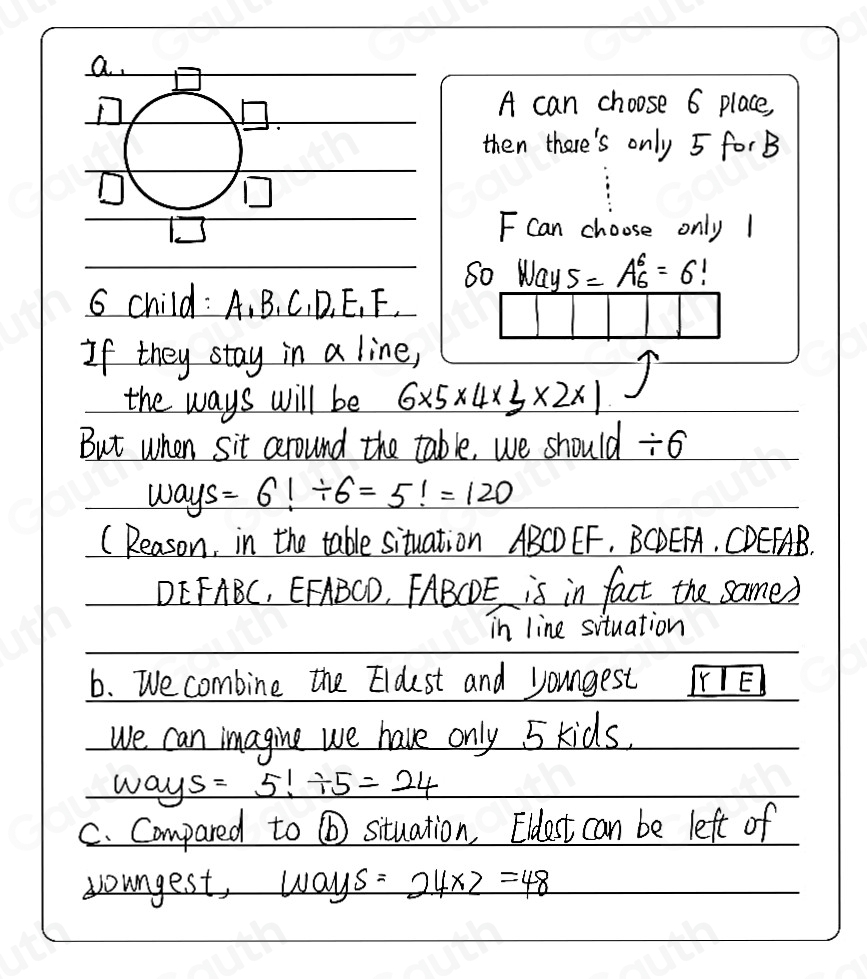 a.
A can choose 6 place,
then there's only 5 for B
F can choose only 1
So Ways = A₆⁶ = 6!
6 child: A, B, C, D, E, F.
If they stay in a line,
the ways will be 6×5×4×3×2×1
But when sit around the table. we should ÷6
ways = 6! ÷6 = 5! = 120
(Reason, in the table situation ABCDEF, BCDEFA, CDEFAB,
DEFABC, EFABCD, FABCDE is in fact the same)
in line situation
b. We combine the Eldest and youngest Y E
We can imagine we have only 5 kids.
ways = 5! ÷5 = 24
c. Compared to ⓑ situation, Eldest can be left of
youngest, ways = 24×2 = 48
Gauth